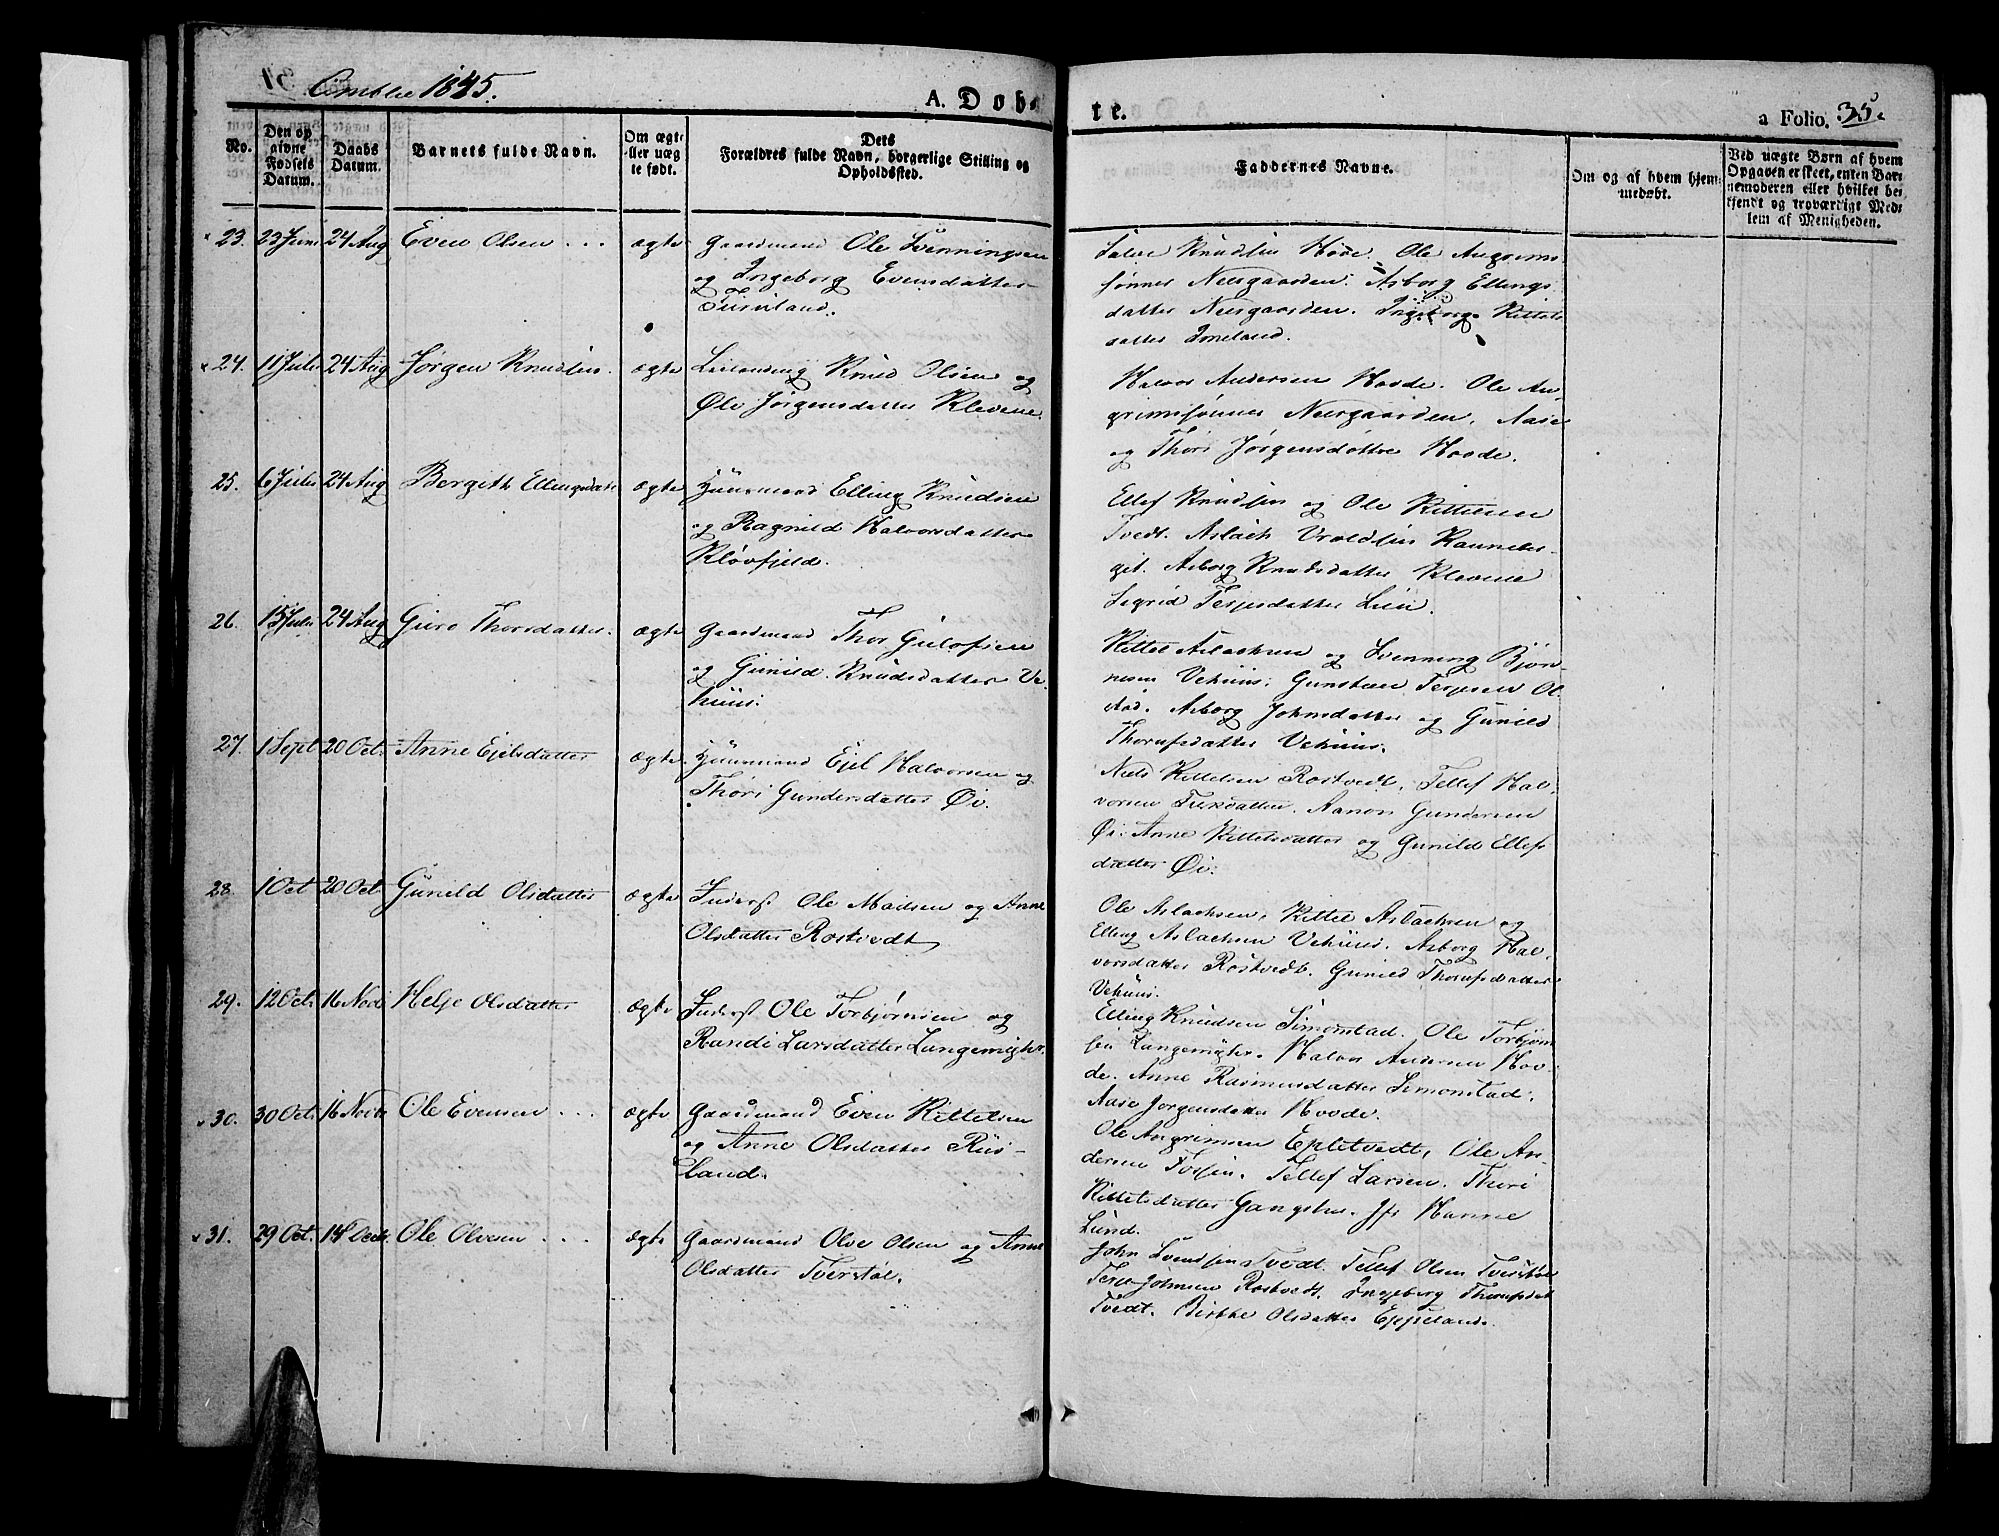 Omblie 1845.
A. Døbte.
a Folio. 35.
No.
Den opgivne Fødsels Datum.
Daabs Datum.
Barnets fulde Navn.
Om ægte eller uægte født.
Dets Forældres fulde Navn, borgerlige Stilling og Opholdssted.
Faddernes Navne.
Om og af hvem hjemmedøbt.
Ved uægte Børn af hvem Opgaven er skeet, enten Barnemoderen eller hvilket bekjendt og troværdigt Medlem af Menigheden.
23. 23 Juni 24 Aug Even Olsen ... ægte Gaardmand Ole Svenningsen
og Ingeborg Evensdatter
Salve Knudsen Hovde. Ole Angrims
sønner Neergaarden. Asborg Ellings
datter Neergaarden. Ingeborg Kittels
datter
24. 11 Juli 24 Aug Jørgen Knudsen. ægte Leilænding Knud Olsen og
Øli Jørgensdatter Klevene.
Halvor Andersen Hovde. Ole An-
grimssønner Neergaarden, Aase
og Thori Jørgensdøttre Hovde.
25. 6 Juli 24 Aug Bergith Ellingsdatter ægte Huusmand Elling Knudsen
og Ragnild Halvorsdatter
Kløvfjeld.
Ellef Knudsen og Ole Kittelsen
Tvedt. Aslach Vraldsen Ramse-
git. Asborg Knudsdatter Klevene
Sigrid Terjesdatter Lien.
26. 15 Juli 24 Aug Guro Thorsdatter. ægte Gaardmand Thor Gulofsen
og Gunild Knudsdatter Ve-
huus.
Kittel Aslachsen og Svenning Bjøn-
nesen Vehuus. Gunsteen Terjesen Ol-
stad. Asborg Johnsdatter og Gunild
Thorufsdatter Vehuus.
27. 1 Sept 20 Oct. Anne Ejelsdatter ægte Huusmand Ejel Halvorsen og
Thori Gundersdatter Øi.
Niels Kittelsen Rostvedt, Tellef Hal-
vorsen. Aanon Gundersen
Øi. Anne Kittelsdatter og Gunild Ellefs
datter Øi.
28. 1 Oct 20 Oct. Gunild Olsdatter ægte Inderst Ole Madsen og Anne
Olsdatter Rostvedt
Ole Aslachsen, Kittel Aslachsen og
Elling Aslachsen Vehuus. Asborg Hal-
vorsdatter Rostvedt. Gunild Thorufsdatter
Vehuus.
29. 12 Oct. 16 Novb Helje Olsdatter ægte Inderst Ole Torbjørnsen og
Randi Larsdatter Langemyhr.
Elling Knudsen Simonstad. Ole Torbjørn
sen Langemyhr. Halvor Andersen Hov-
de. Anne Rasmusdatter Simonstad.
Aase Jørgensdatter Hovde.
30. 30 Oct. 16 Novb Ole Evensen ... ægte Gaardmand Even Kittelsen
og Anne Olsdatter Rus-
land.
Ole Angrimsen Epletvedt, Ole An-
dersen. Tellef Larsen. Thori
Kittelsdatter. Jfr Hanne
Lund.
31. 29 Oct. 14 Decb. Ole Olvesen ... ægte Gaardmand Olve Olsen og Anne
Olsdatter Tverstøl.
John Svendsen Tvedt. Tellef Olsen Tverstøl
Terje Johnsen Rostvedt. Ingeborg Thorufsdat
Tvedt. Birthe Olsdatter Eppeland.